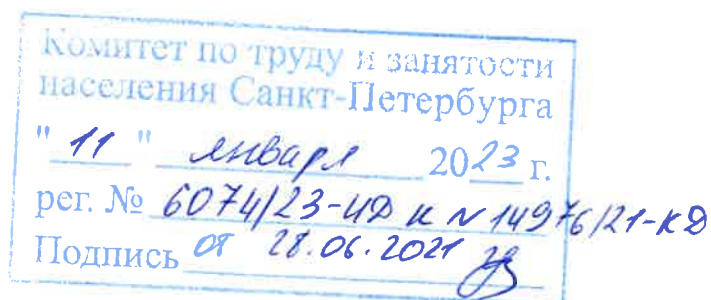 Комитет по труду и занятости
населения Санкт-Петербурга
" 11 " января 2023 г.
рег. № 6074/23-ИД к № 14976/21-КД
Подпись от 28.06.2021